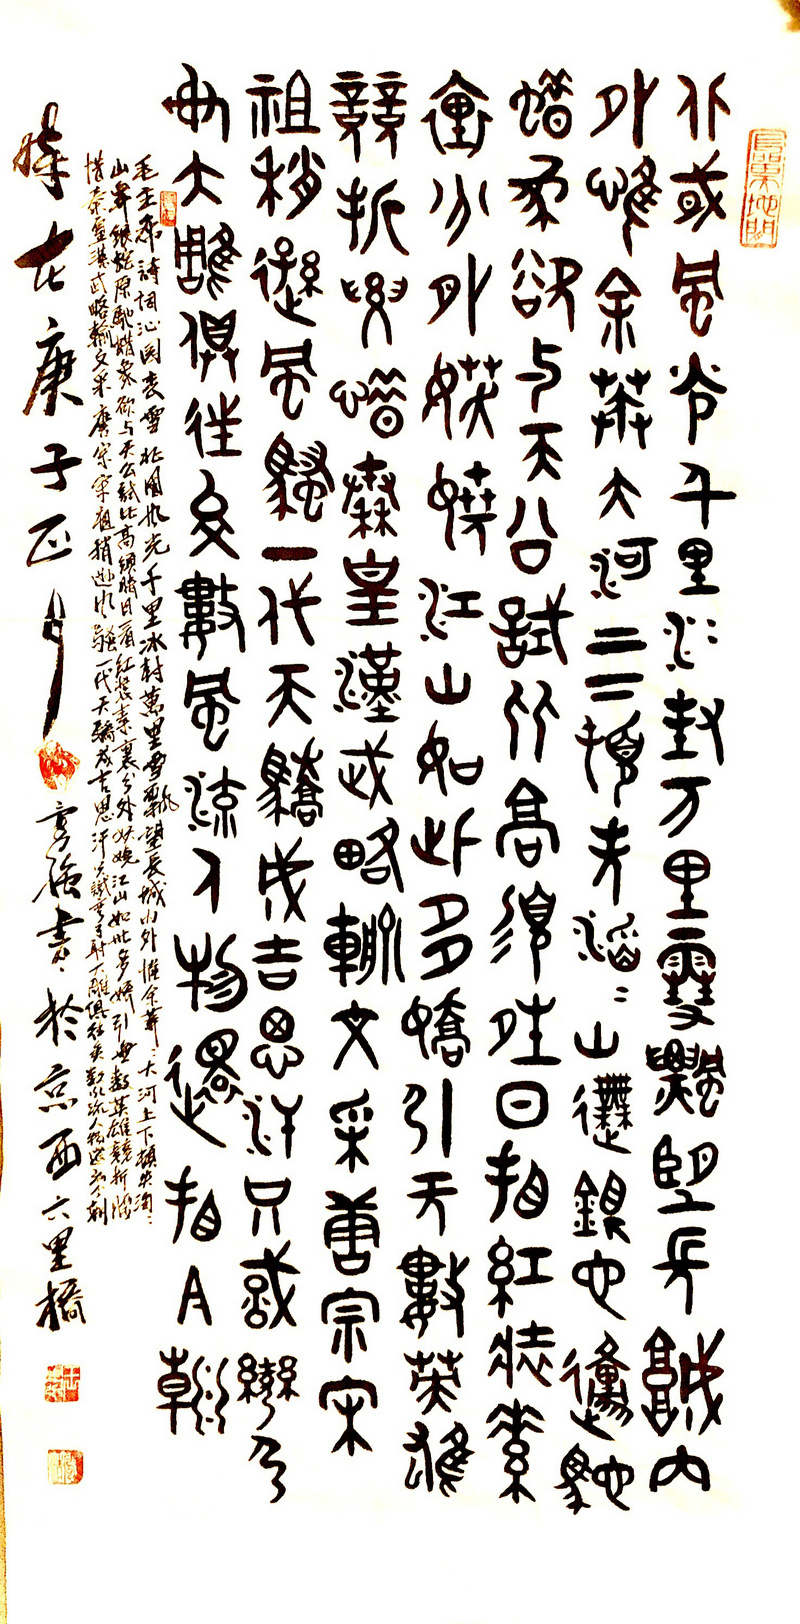 北或風光千里冰封万里雪飄望長城内
外唯余莽大河上下頓失滔〻山舞銀它原馳
蜡象欲与天公試比高須晴日看紅裝素
裹分外妖嬈江山如此多嬌引无數英雄
競折腰惜秦皇漢武略輸文采唐宗宋
祖稍遜風騷一代天驕成吉思汗只識彎弓
射大雕俱往矣數風流人物還看今朝
毛主席詩詞沁園春雪北國風光千里冰封萬里雪飄望長城内外惟余莽〻大河上下頓失滔〻
山舞銀蛇原馳蜡象欲与天公試比高須晴日看紅裝素裹分外妖嬈江山如此多嬌引無數英雄競折腰
惜秦皇漢武略輸文采唐宗宋祖稍遜風騷一代天驕成吉思汗只識彎弓射大雕俱往矣數風流人物還看今朝
歲在庚子正月
書於京西六里橋